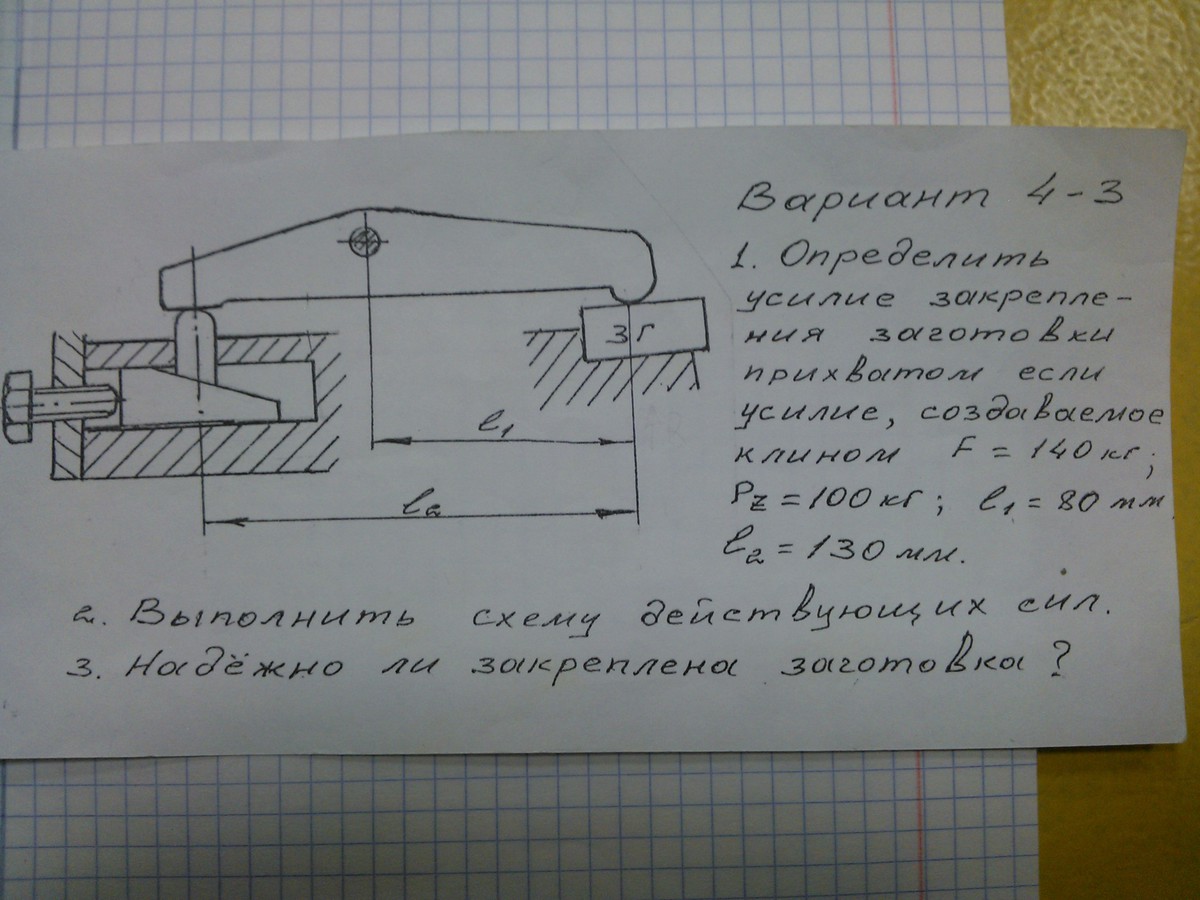 Вариант 4-3
1. Определить
усилие закрепле-
ния заготовки
прихватом если
усилие, создаваемое
клином F = 140 кг;
Pz = 100 кг; l₁ = 80 мм
l₂ = 130 мм.
зг
l₁
l₂
2. Выполнить схему действующих сил.
3. Надёжно ли закреплена заготовка?